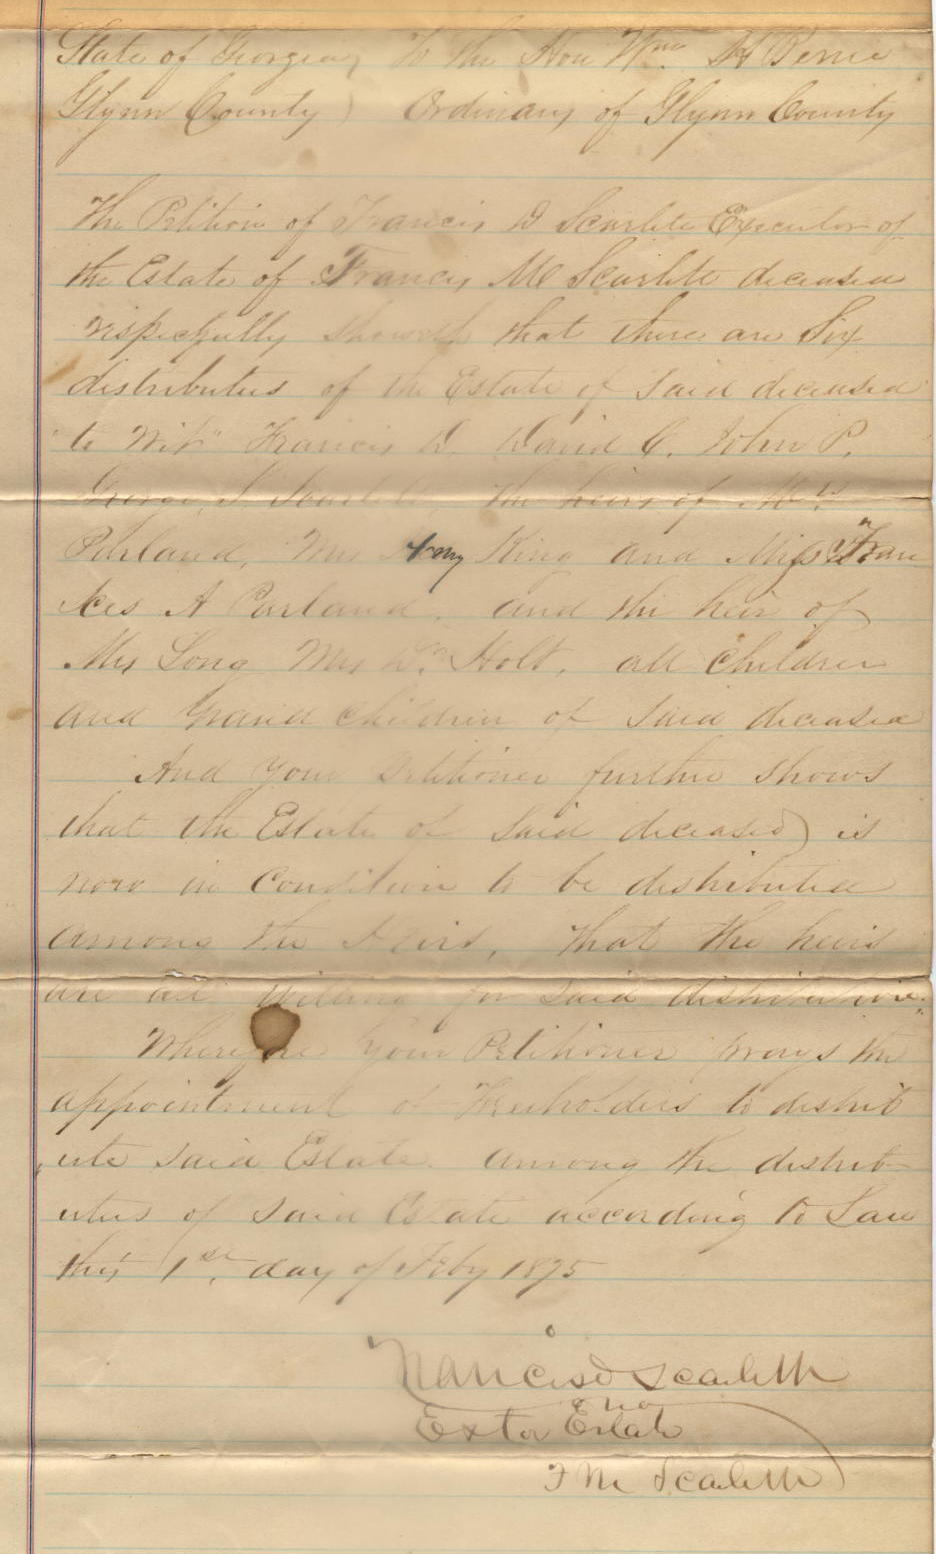 State of Georgia, To the Hon Wm. H
Glynn County ) Ordinary of Glynn County
The Petition of Francis D Scarlett Executor of
the Estate of Francis M Scarlett deceased
respectfully showeth that there are Six
distributees of the Estate of said deceased
to wit" Francis D. David C. John P.
George the heirs of Mrs
Parland, Mrs Amy King and Miss Fran
ces A Parland. and the heir of
Mrs Long Mrs Holt, all children
and Grand children of said deceased
And your Petitioner further shows
that the Estate of said deceased is
now in condition to be distributed
among the Heirs, that the heirs
are all willing for said distribution.
Wherefore your Petitioner prays the
appointment of Freeholders to distrib
ute said Estate among the distrib-
utees of said Estate according to Law
this 1st, day of Feby 1875
Francis D Scarlett
Extor Estate
F M Scarlett